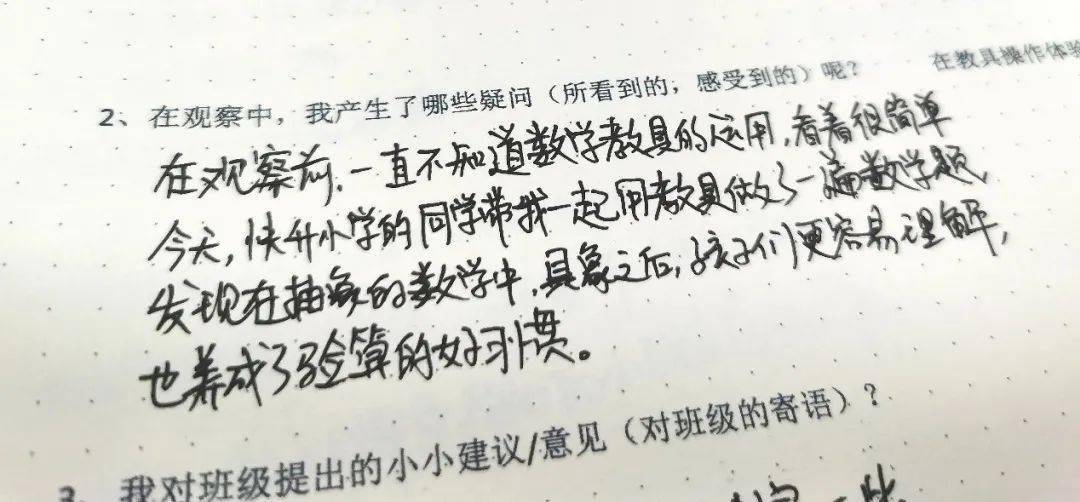 2、在观察中，我产生了哪些疑问（所看到的；感受到的）呢？ 在教具操作体验
在观察前，一直不知道数学教具的运用，看着很简单
今天，快升小学的同学带我一起用教具做了一遍数学题，
发现在抽象的数学中，具象之后，孩子们更容易理解，
也养成了验算的好习惯。
3、我对班级提出的小小建议/意见（对班级的寄语）？